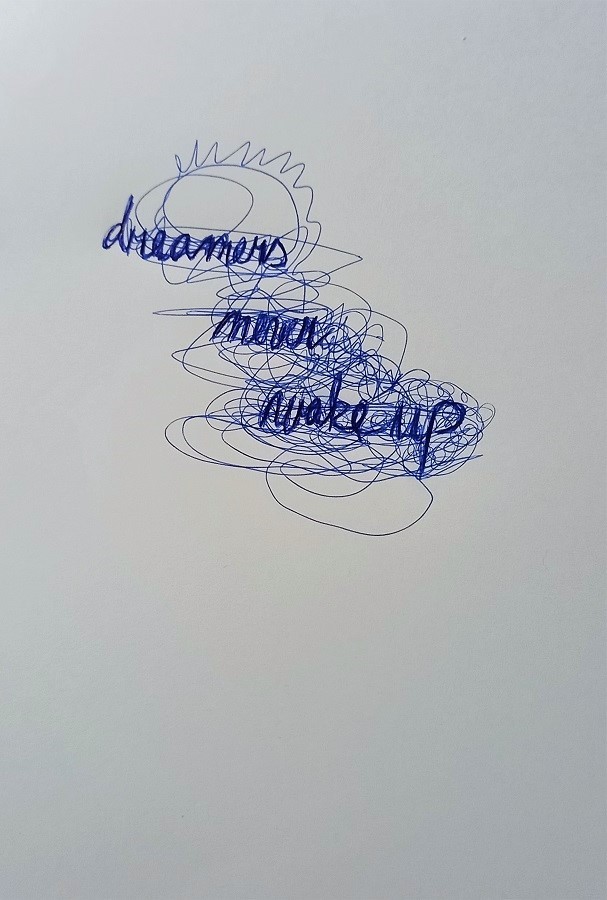 dreamers
never
wake up